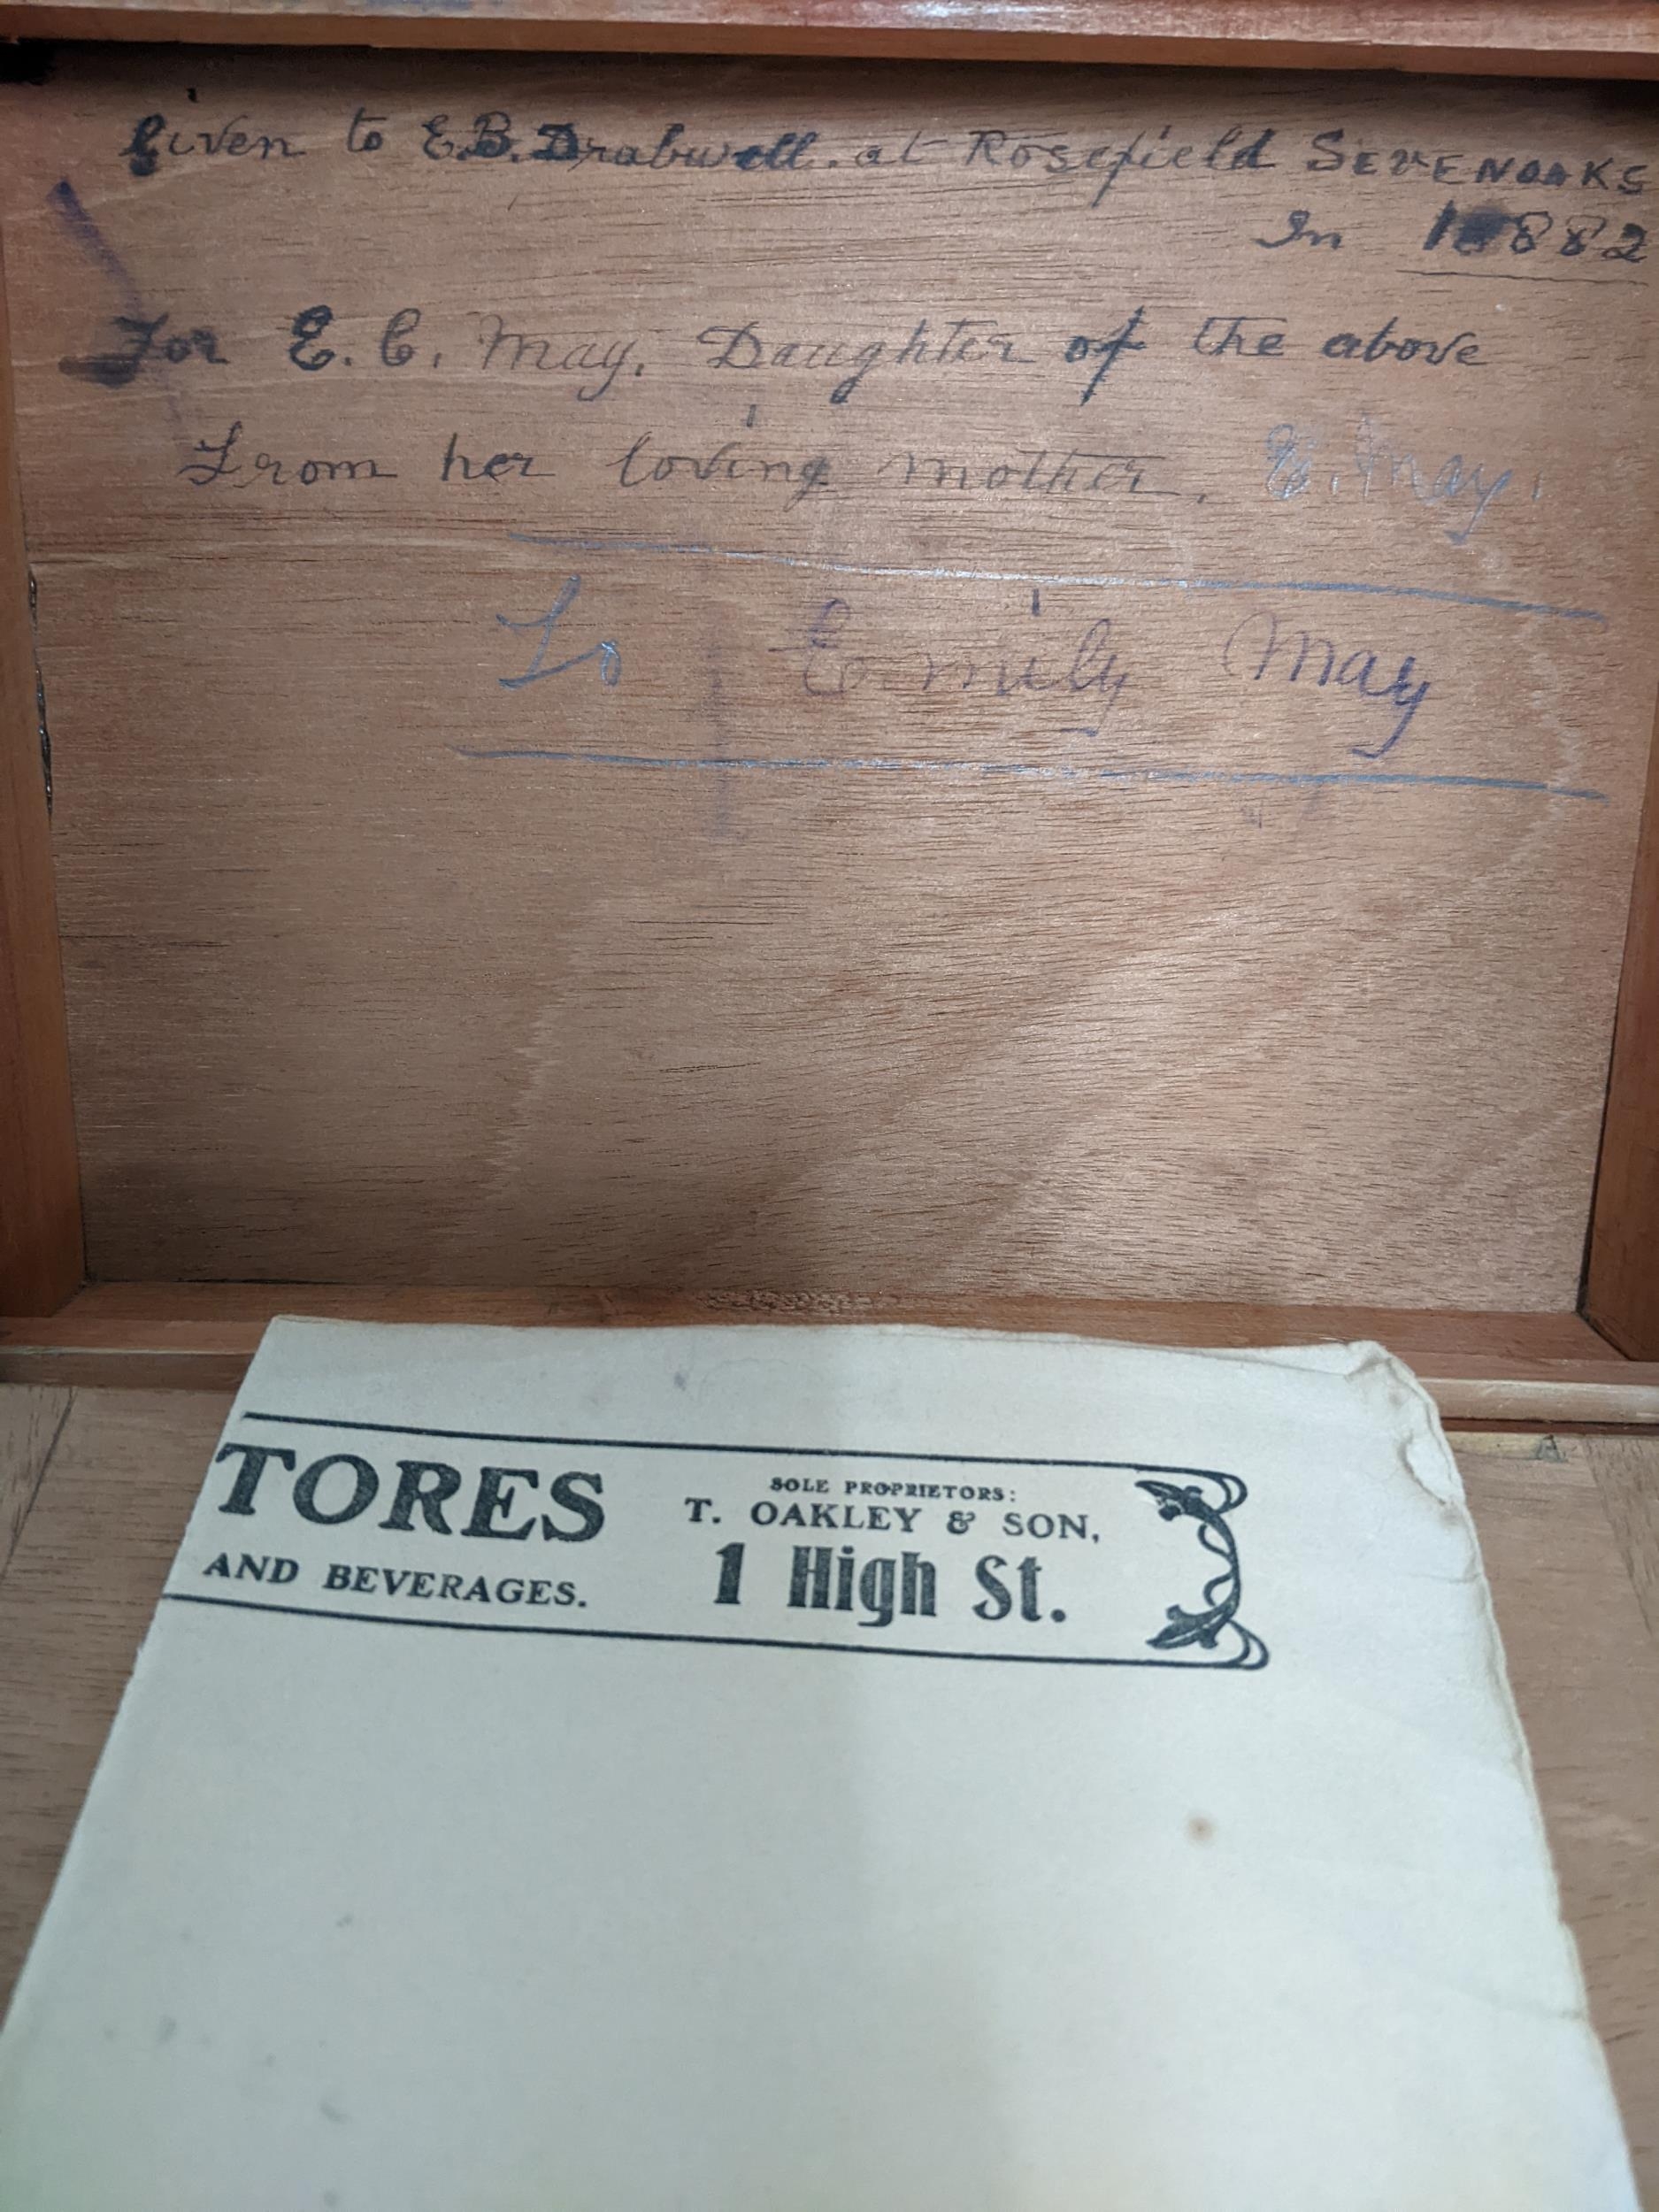 Given to E.B. Drabwell. at Rosefield SEVENOAKS
In 1882
For E. C. May. Daughter of the above
From her loving mother. E. May.
To Emily May
TORES
AND BEVERAGES.
SOLE PROPRIETORS:
T. OAKLEY & SON,
1 High St.